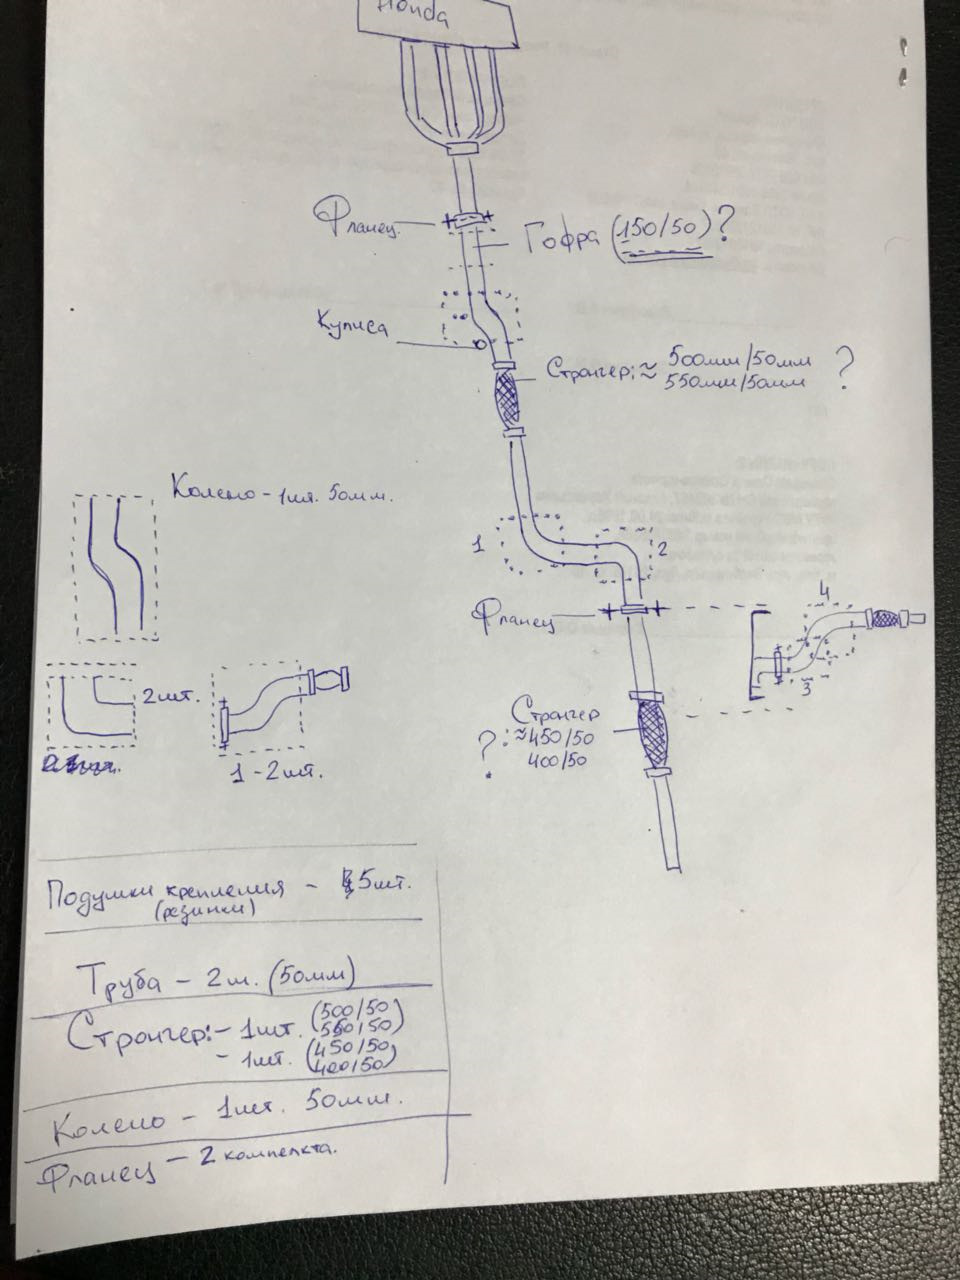 Honda
Фланец
Гофра (150/50)?
Кулиса
Стронгер: ≈ 500мм/50мм ?
550мм/50мм
Колено - 1шт. 50мм.
1
2
Фланец
4
3
2шт.
1 - 2шт.
Стронгер
? : ≈450/50
400/50
Подушки крепления - 5шт.
(резинки)
Труба - 2м. (50мм)
Стронгер: - 1шт. (500/50
550/50)
- 1шт. (450/50
400/50)
Колено - 1шт. 50мм.
Фланец - 2 компекта.